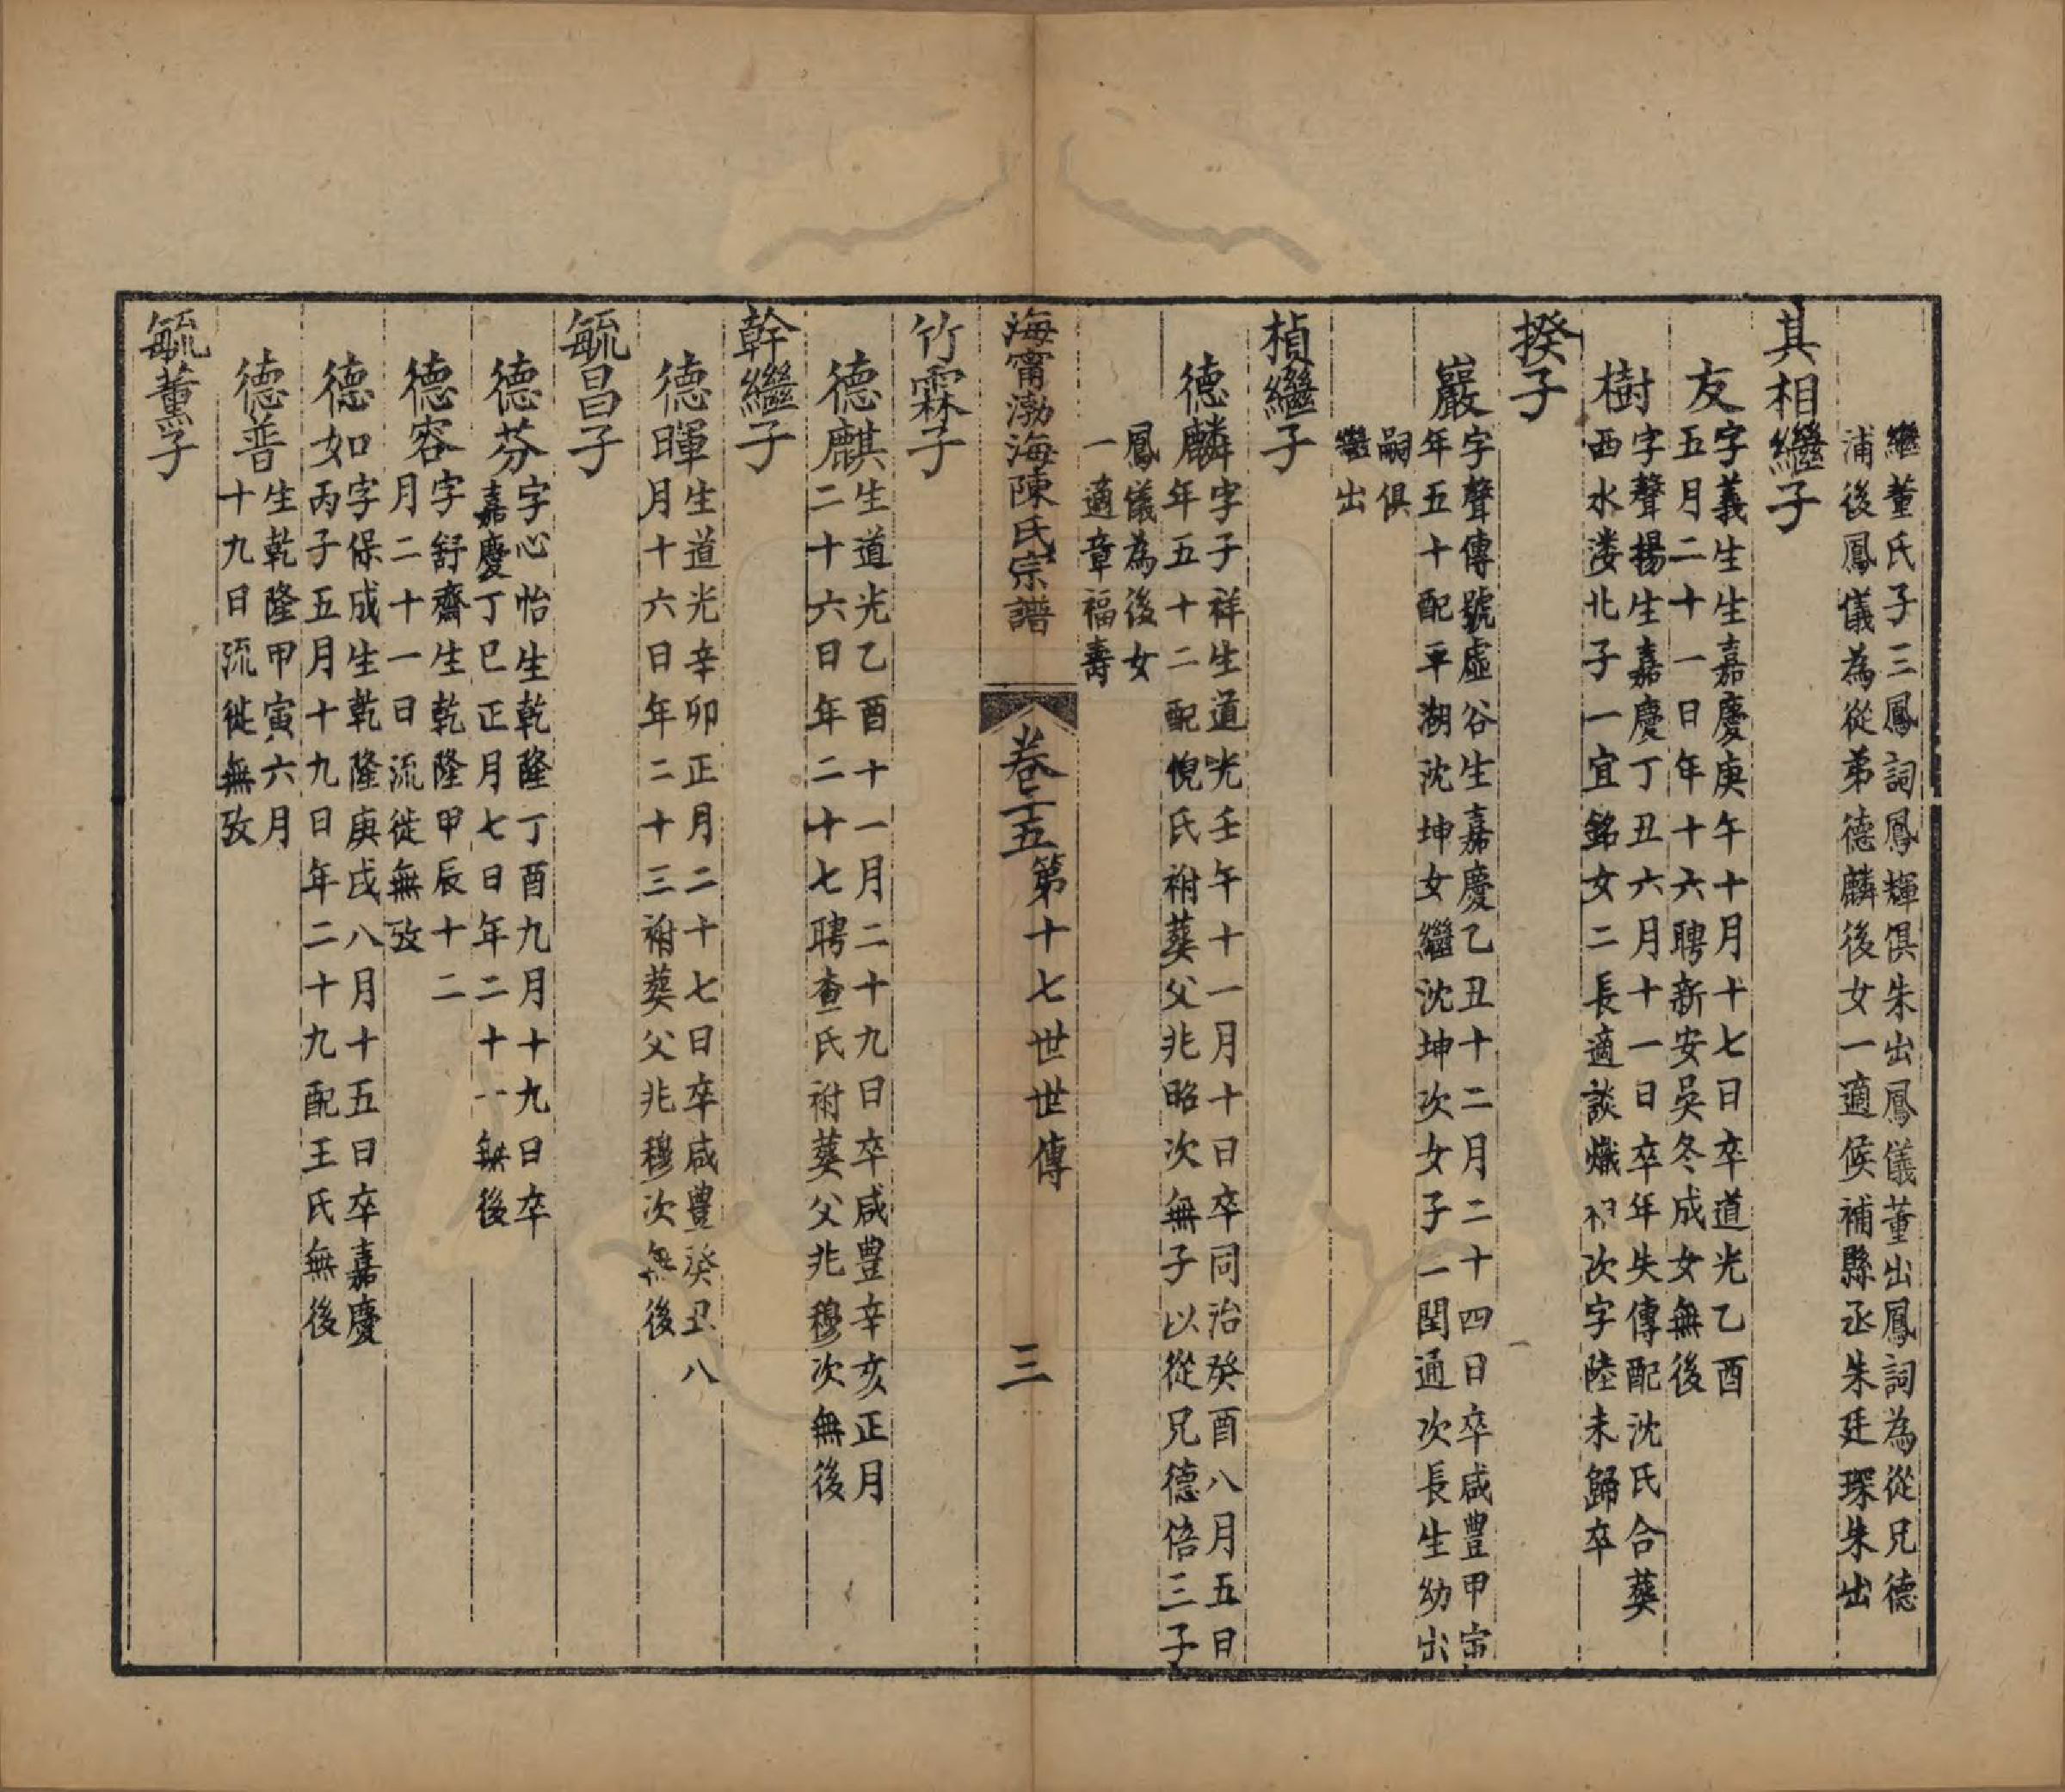 繼董氏子三鳳詞鳳輝俱朱出鳳儀董出鳳詞為從兄德
浦後鳳儀為從弟德麟後女一適候補縣丞朱廷琛朱出
其相繼子
友字義生生嘉慶庚午十月十七日卒道光乙酉
五月二十一日年十六聘新安吳冬成女無後
樹字聲揚生嘉慶丁丑六月十一日卒年失傳配沈氏合葬
西水漊北子一宜銘女二長適談熾次字陸未歸卒
揆子
巖字聲傳號虛谷生嘉慶乙丑十二月二十四日卒咸豐甲寅
年五十配平湖沈坤女繼沈坤次女子一閏通次長生幼出
嗣俱
繼出
楨繼子
德麟字子祥生道光壬午十一月十日卒同治癸酉八月五日
年五十二配倪氏祔葬父兆昭次無子以從兄德倍三子
鳳儀為後女
一適章福壽
海甯渤海陳氏宗譜 卷二十五 第十七世世傳 三
竹霖子
德麒生道光乙酉十一月二十九日卒咸豐辛亥正月
二十六日年二十七聘查氏祔葬父兆穆次無後
幹繼子
德暉生道光辛卯正月二十七日卒咸豐癸丑八
月十六日年二十三祔葬父兆穆次無後
毓昌子
德芬字心怡生乾隆丁酉九月十九日卒
嘉慶丁巳正月七日年二十一無後
德容字舒齋生乾隆甲辰十二
月二十一日流徙無攷
德如字保成生乾隆庚戌八月十五日卒嘉慶
丙子五月十九日年二十九配王氏無後
德普生乾隆甲寅六月
十九日流徙無攷
毓董子